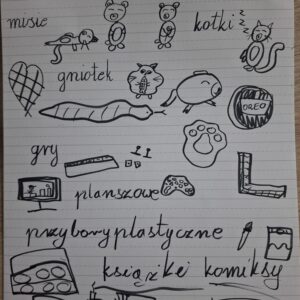 misie kotki
gniotek
OREO
gry
planszowe
przybory plastyczne
książki komiksy